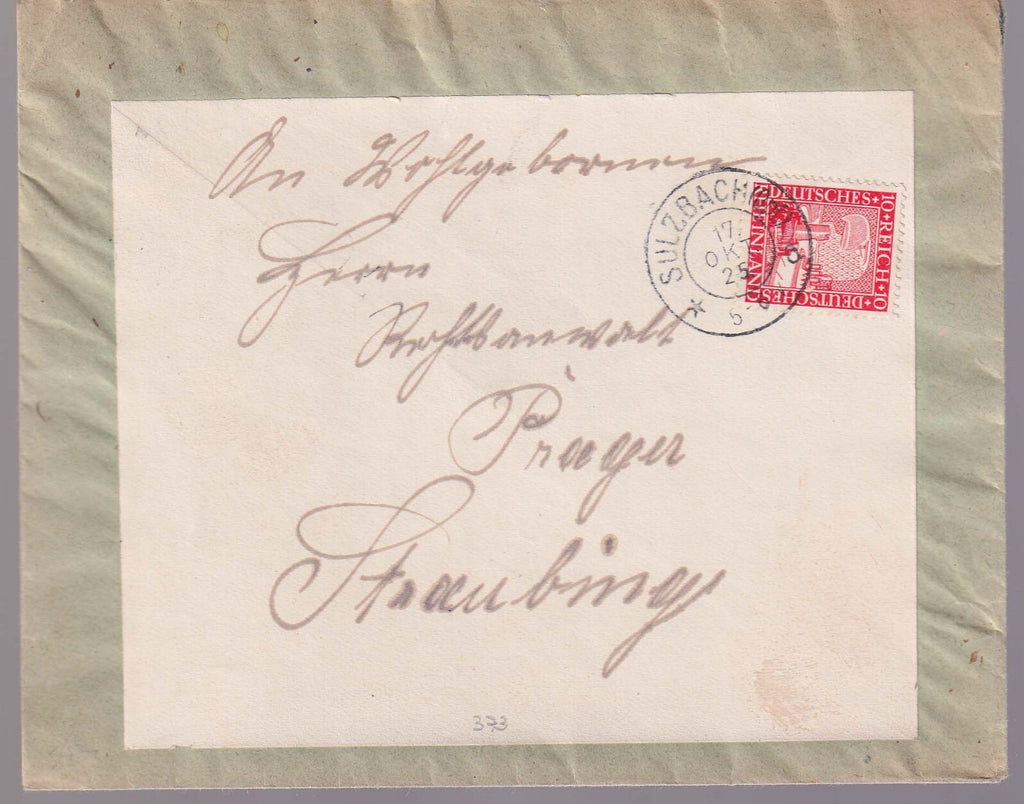 An Wohlgebornen
Herrn
Rechtsanwalt
Präger
Straubing
SULZBACH
17.
OKT
25
5-6
DEUTSCHES
10 REICH 10
DEUTSCHES
RHEINLAND
373